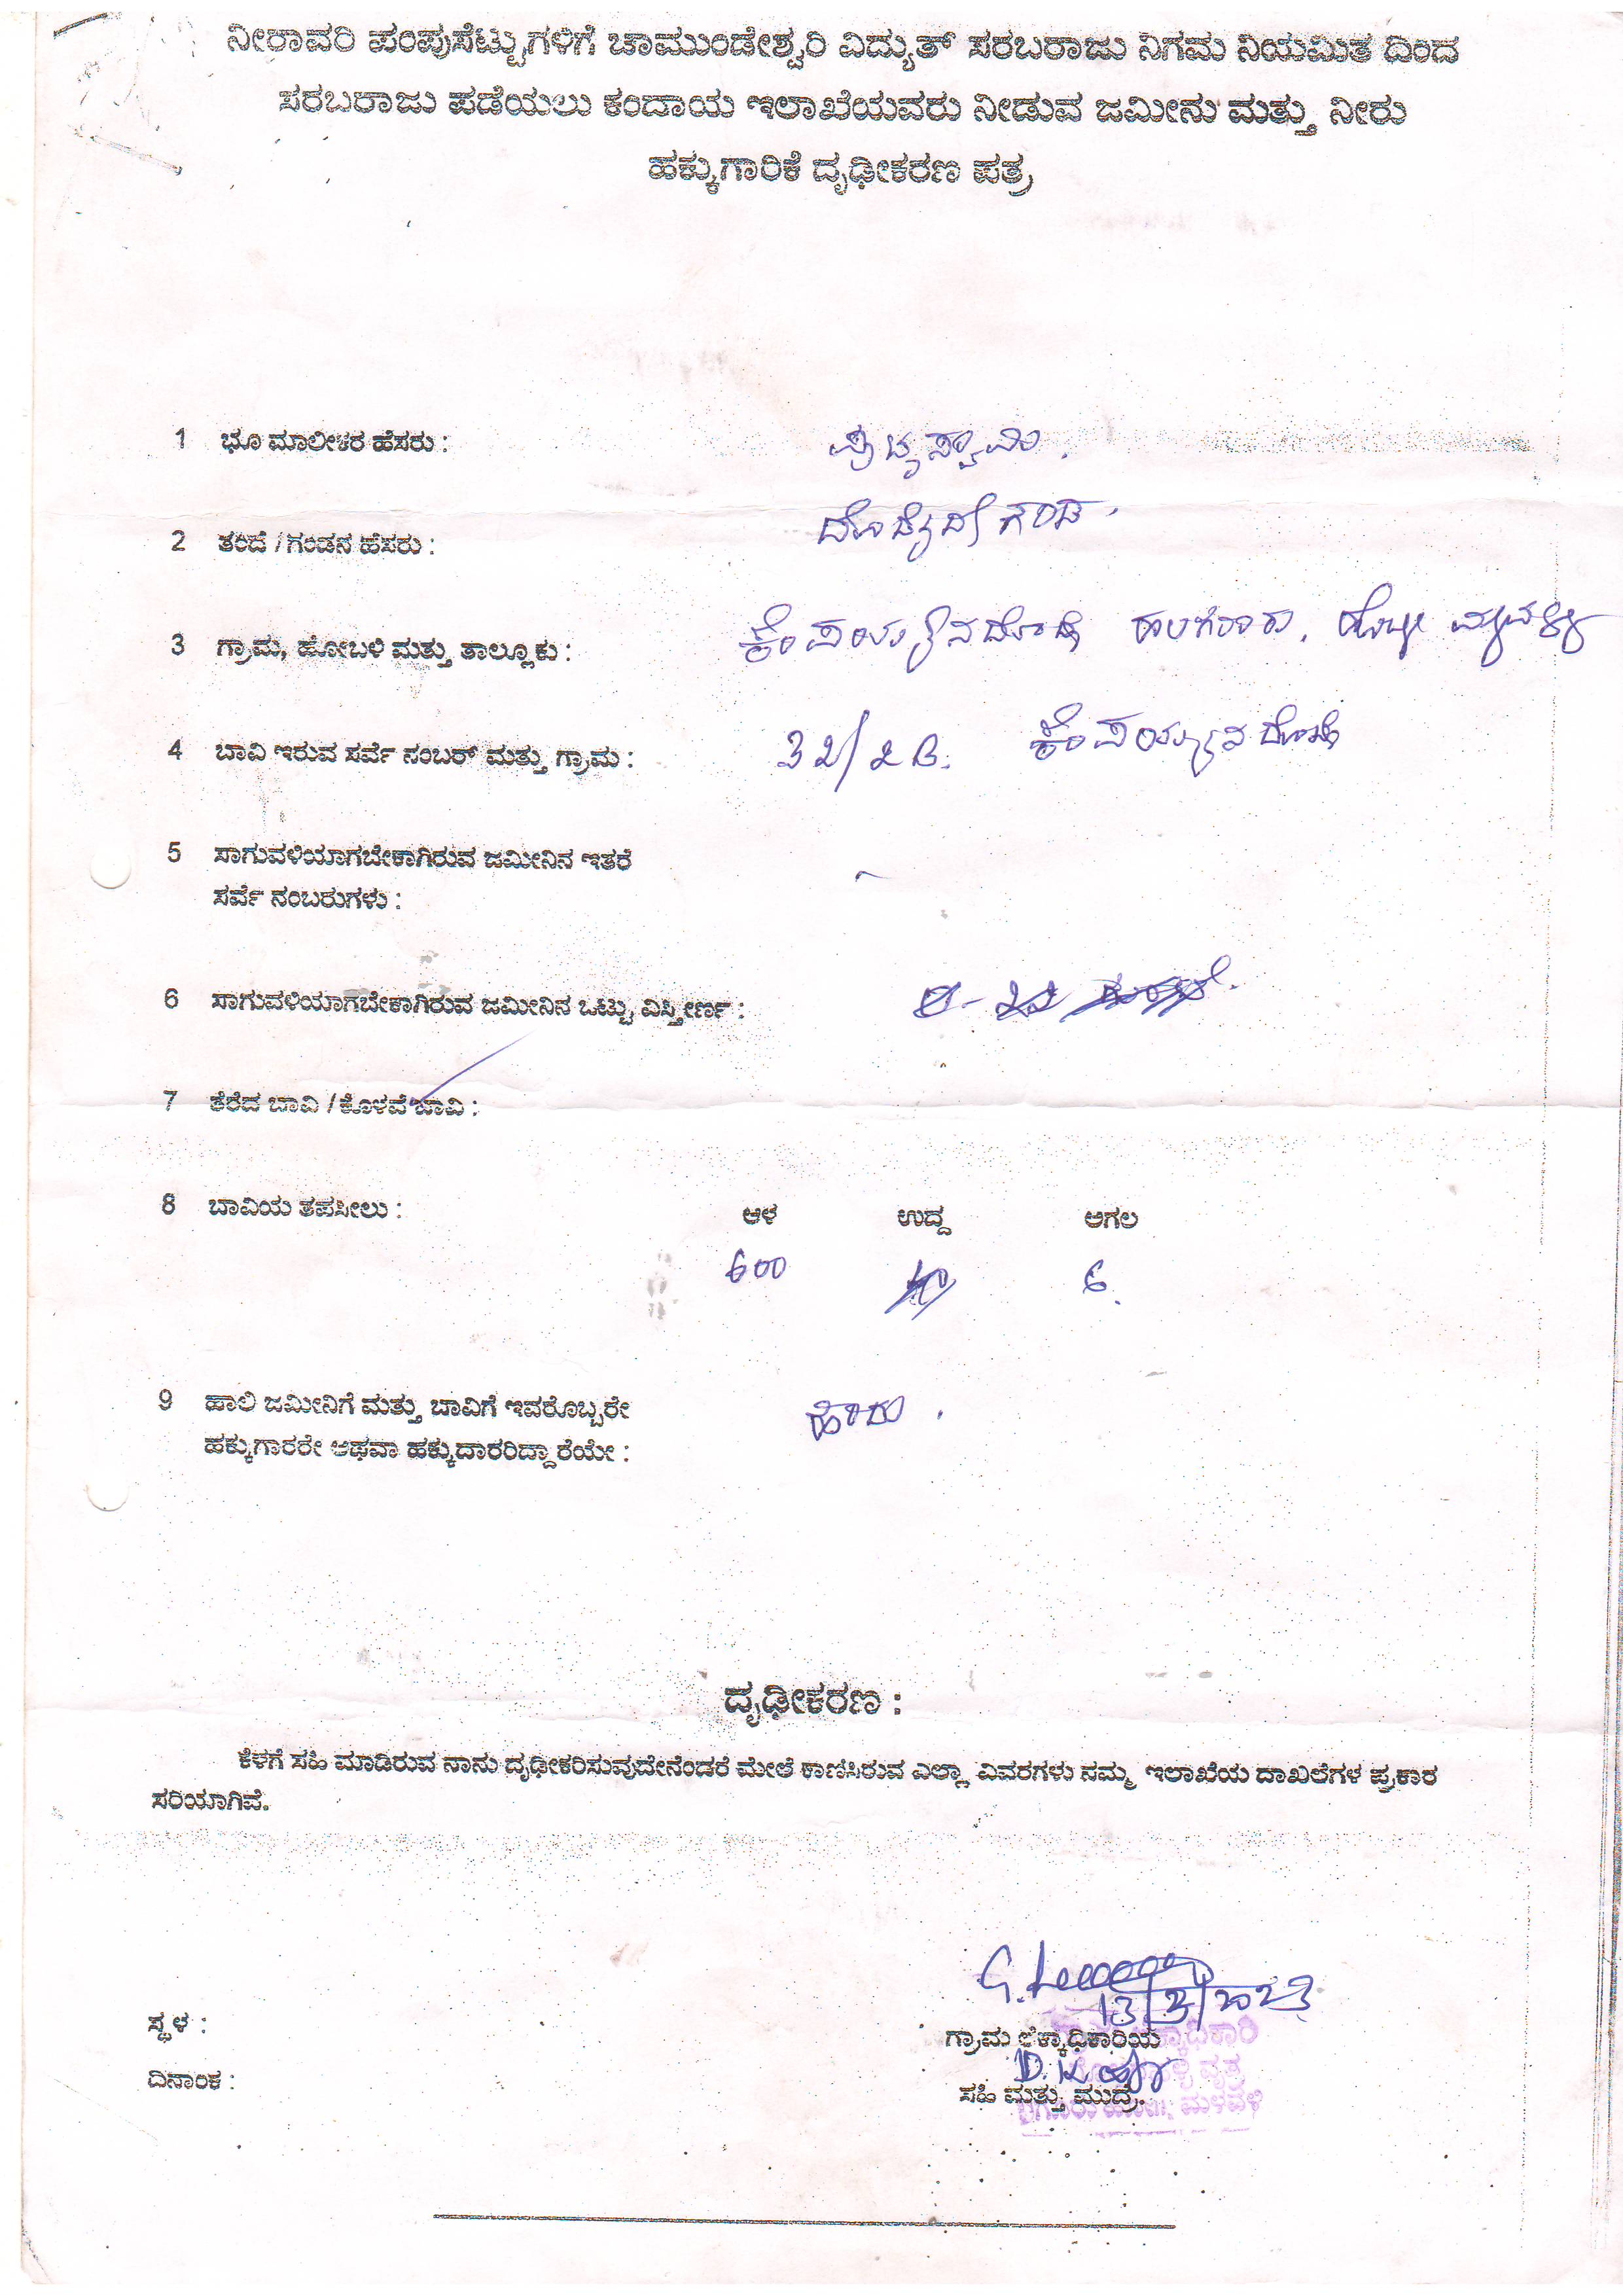 ನೀರಾವರಿ ಪಂಪುಸೆಟ್ಟುಗಳಿಗೆ ಚಾಮುಂಡೇಶ್ವರಿ ವಿದ್ಯುತ್ ಸರಬರಾಜು ನಿಗಮ ನಿಯಮಿತ ದಿಂದ
ಸರಬರಾಜು ಪಡೆಯಲು ಕಂದಾಯ ಇಲಾಖೆಯವರು ನೀಡುವ ಜಮೀನು ಮತ್ತು ನೀರು
ಹಕ್ಕುಗಾರಿಕೆ ದೃಢೀಕರಣ ಪತ್ರ
1 ಭೂ ಮಾಲೀಕರ ಹೆಸರು : ಪುಟ್ಟಸ್ವಾಮಿ.
2 ತಂದೆ / ಗಂಡನ ಹೆಸರು :
3 ಗ್ರಾಮ, ಹೋಬಳಿ ಮತ್ತು ತಾಲ್ಲೂಕು :
4 ಬಾವಿ ಇರುವ ಸರ್ವೆ ನಂಬರ್ ಮತ್ತು ಗ್ರಾಮ : 32/2B.
5 ಸಾಗುವಳಿಯಾಗಬೇಕಾಗಿರುವ ಜಮೀನಿನ ಇತರೆ
ಸರ್ವೆ ನಂಬರುಗಳು :
6 ಸಾಗುವಳಿಯಾಗಬೇಕಾಗಿರುವ ಜಮೀನಿನ ಒಟ್ಟು ವಿಸ್ತೀರ್ಣ :
7 ತೆರೆದ ಬಾವಿ / ಕೊಳವೆ ಬಾವಿ :
8 ಬಾವಿಯ ತಪಸೀಲು : ಆಳ ಉದ್ದ ಅಗಲ
600 6.
9 ಹಾಲಿ ಜಮೀನಿಗೆ ಮತ್ತು ಬಾವಿಗೆ ಇವರೊಬ್ಬರೇ
ಹಕ್ಕುಗಾರರೇ ಅಥವಾ ಹಕ್ಕುದಾರರಿದ್ದಾರೆಯೇ : ಹೌದು.
ದೃಢೀಕರಣ :
ಕೆಳಗೆ ಸಹಿ ಮಾಡಿರುವ ನಾನು ದೃಢೀಕರಿಸುವುದೇನೆಂದರೆ ಮೇಲೆ ಕಾಣಿಸಿರುವ ಎಲ್ಲಾ ವಿವರಗಳು ನಮ್ಮ ಇಲಾಖೆಯ ದಾಖಲೆಗಳ ಪ್ರಕಾರ
ಸರಿಯಾಗಿವೆ.
13/3/2023
ಸ್ಥಳ :
ಗ್ರಾಮ ಲೆಕ್ಕಾಧಿಕಾರಿಯ
ದಿನಾಂಕ :
ಸಹಿ ಮತ್ತು ಮುದ್ರೆ.